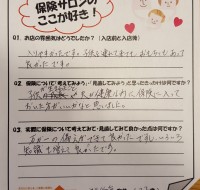 保険サロンの
ここが好き!
Q1. お店の雰囲気はどうでしたか?(入店前と入店後)
入りやすかったです。子供を連れて来ても、おもちゃもあって
良かったです。
Q2. 保険について「考えてみよう」「見直してみよう」と思ったきっかけは何ですか?
子供が
健康な内に保険に入って
おいた方がいいかなと思いました。
Q3. 実際に保険について考えてみて・見直してみて良かった点は何ですか?
万が一の備えができて良かったです。
良かったです。